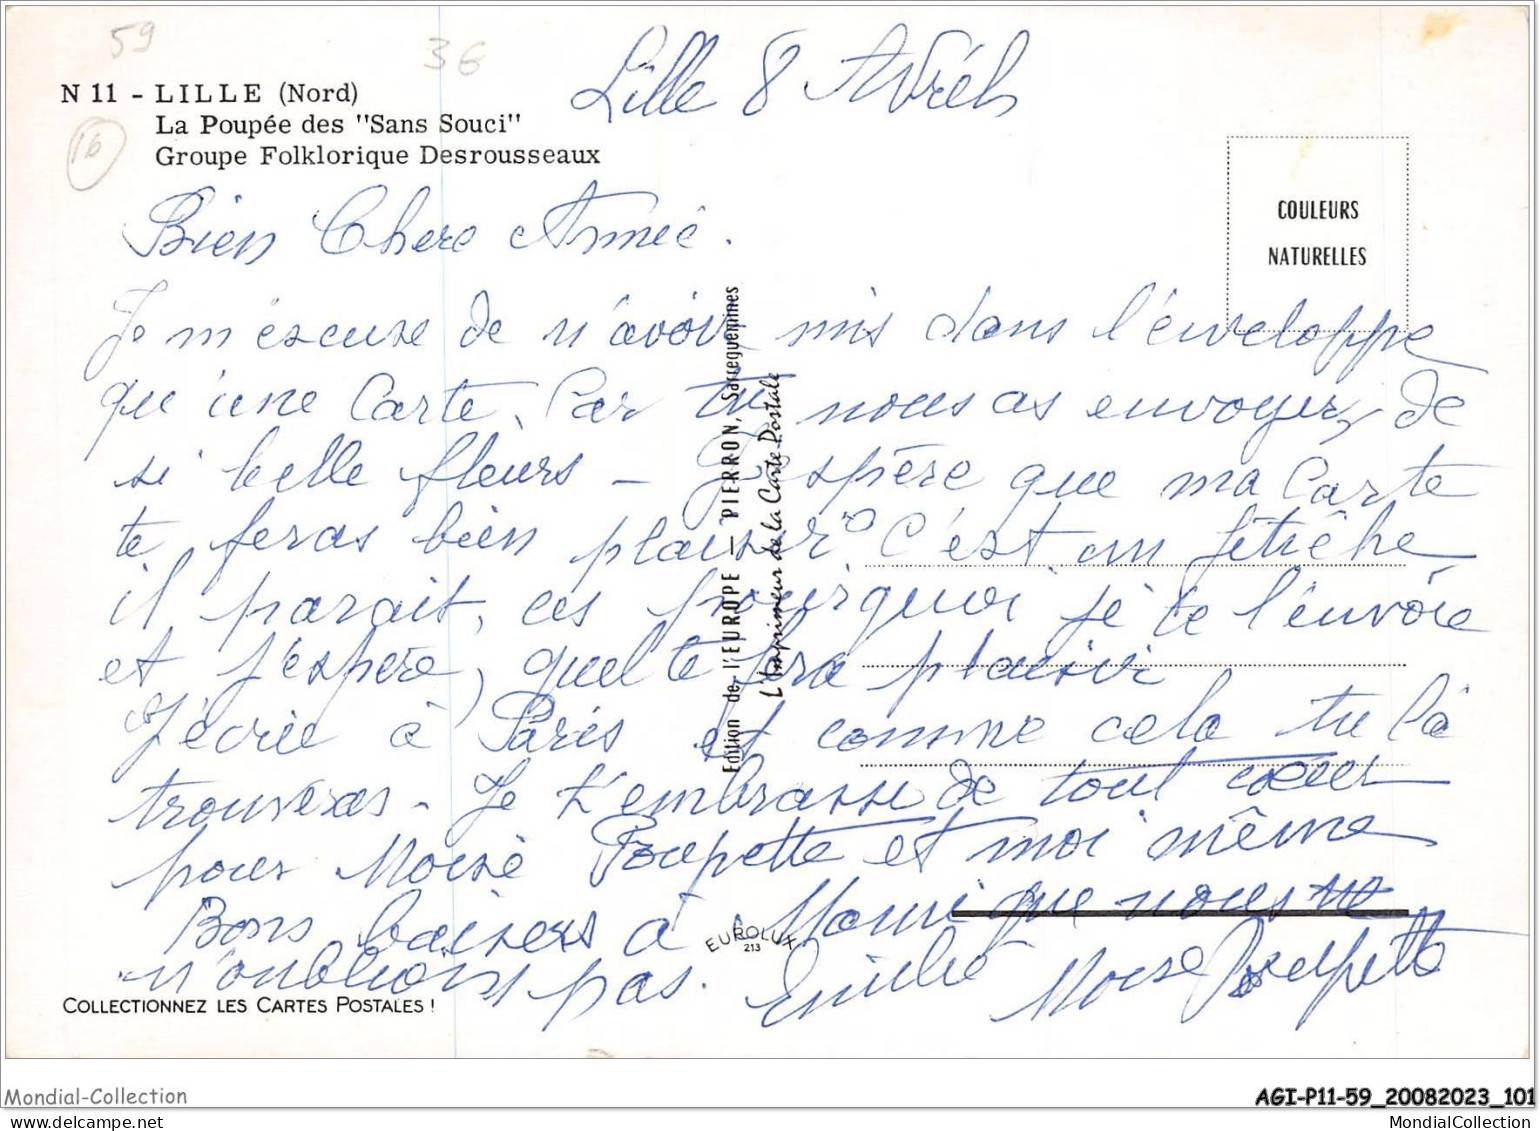 59
3€
N 11 - LILLE (Nord)
La Poupée des "Sans Souci"
Groupe Folklorique Desrousseaux
16
Lille 8 Avrél
COULEURS
NATURELLES
Bien Chere Amie.
Je m'éscuse de n'avoir mis dans l'énveloppe
qu'une Carte, Car tu nous as envoyer, de
si belle fleurs - J'espère que ma Carte
te feras bien plaisir C'est un fétiche
il parait, ces pourquoi je te l'énvoie
et j'espère, quel te fera plaisir
J'écrie à Paris et comme cela tu la
trouveras - Je t'embrasse de tout cœur
pour Moise Poupette et moi même
Bons baisers à Monique nous ne
n'oublions pas. Emilie Moise Poupette
Edition de l'EUROPE — PIERRON, Sarreguemines
L'Imprimeur de la Carte Postale
EUROLUX
213
COLLECTIONNEZ LES CARTES POSTALES !
Mondial-Collection
AGI-P11-59_20082023_101
MondialCollection